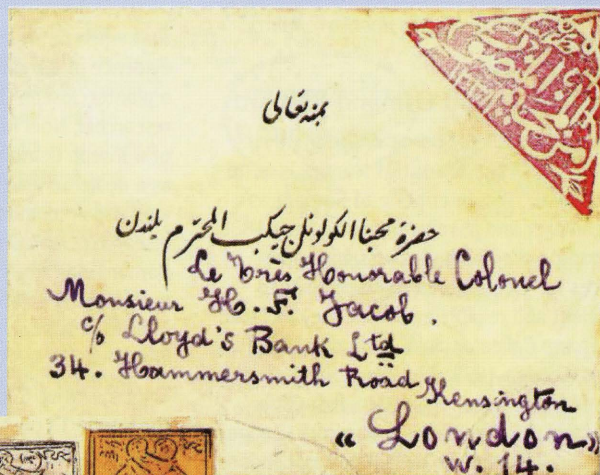 بمنه تعالى
حضرة محبنا الكولونل جيكب المحترم بلندن
Le Très Honorable Colonel
Monsieur H. F. Jacob.
c/o Lloyd's Bank Ltd
34. Hammersmith Road
Kensington
" London "
W. 14.